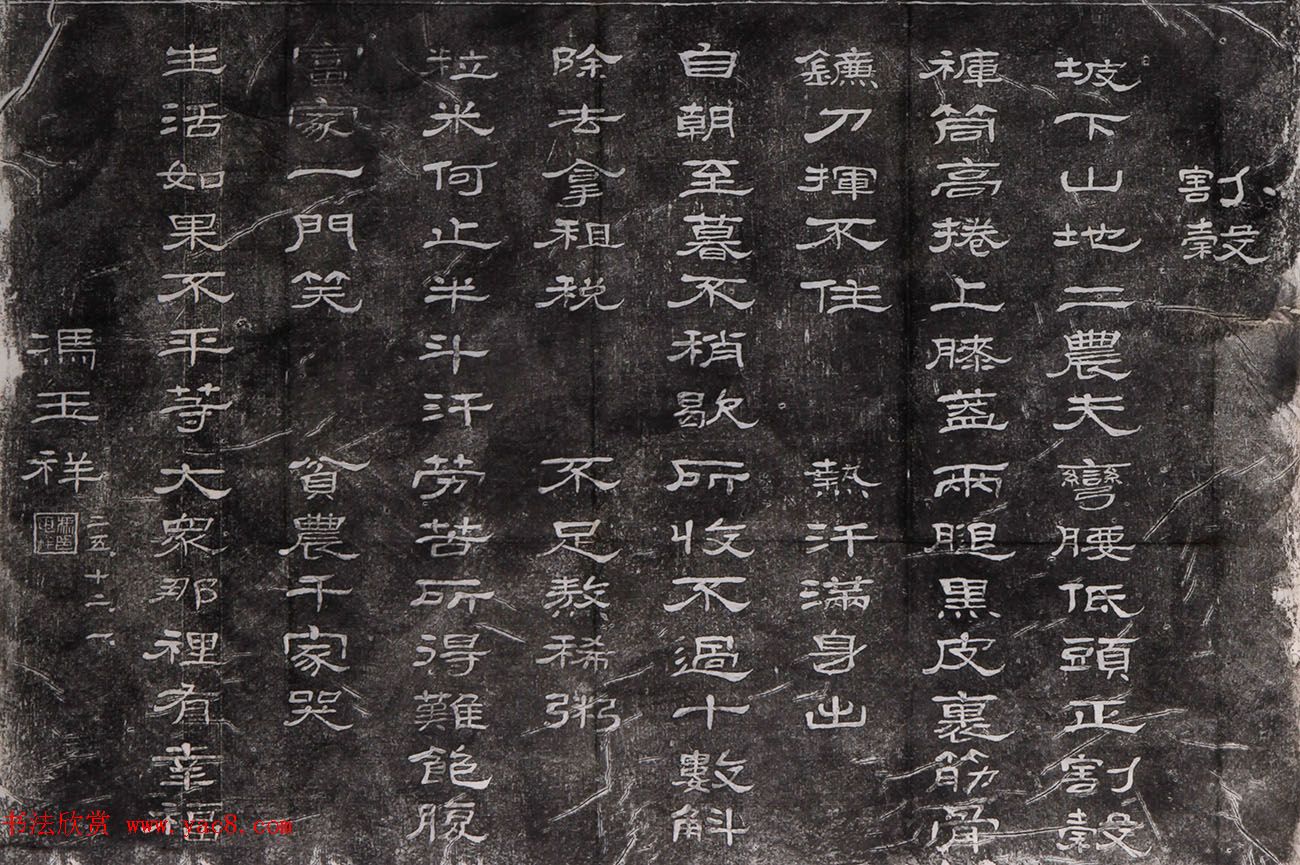 割穀
坡下山地二農夫彎腰低頭正割穀
褲筒高捲上膝蓋兩腿黑皮裏筋骨
鐮刀揮不住 熱汗滿身出
自朝至暮不稍歇所收不過十數斛
除去拿租稅 不足熬稀粥
粒米何止半斗汗勞苦所得難飽腹
富家一門笑 貧農千家哭
生活如果不平等大眾那裡有幸福
馮玉祥
二五、十二、一
书法欣赏 www.yac8.com